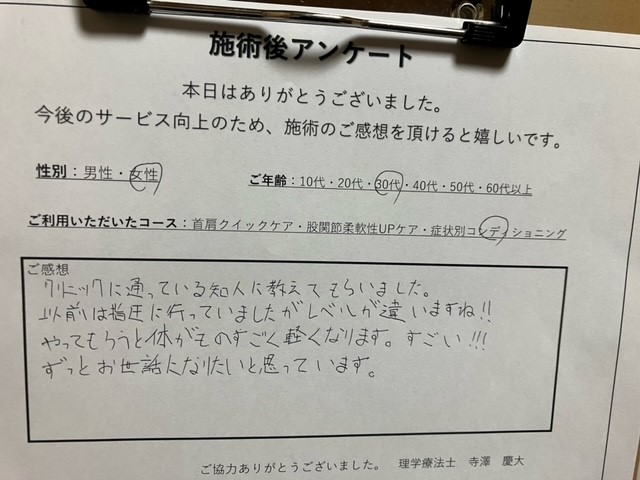 施術後アンケート
本日はありがとうございました。
今後のサービス向上のため、施術のご感想を頂けると嬉しいです。
性別：男性・女性
ご年齢：10代・20代・30代・40代・50代・60代以上
ご利用いただいたコース：首肩クイックケア・股関節柔軟性UPケア・症状別コンディショニング
ご感想
クリニックに通っている知人に教えてもらいました。
以前は指圧に行っていましたがレベルが違いますね!!
やってもらうと体がものすごく軽くなります。すごい!!!
ずっとお世話になりたいと思っています。
ご協力ありがとうございました。 理学療法士 寺澤 慶大